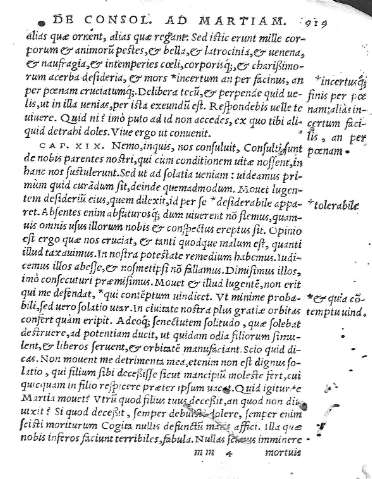 DE CONSOL. AD MARTIAM. 919
alias quæ ornent, alias quæ regant. Sed istic erunt mille cor-
porum & animorũ pestes, & bella, & latrocinia, & uenena,
& naufragia, & intemperies cœli, corporisq;, & charissimo-
rum acerba desideria, & mors *incertum an per facinus, an
per pœnam cruciatumq;. Delibera tecũ, & perpende quid ue-
lis, ut in illa uenias, per ista exeundũ est. Respondebis uelle te
uiuere. Quid ni? imò puto ad id non accedes, ex quo tibi ali-
quid detrahi doles. Viue ergo ut conuenit.
*incertusq;
finis per pœ
nam: alias in-
certum faci-
lis, an per
pœnam.
CAP. XIX. Nemo, inquis, nos consuluit, Consulti sunt
de nobis parentes nostri, qui cùm conditionem uitæ nossent, in
hanc nos sustulerunt. Sed ut ad solatia ueniam: uideamus pri-
mùm quid curãdum sit, deinde quemadmodum. Mouet lugen-
tem desideriũ eius, quem dilexit, id per se *desiderabile appa-
ret. Absentes enim abfuturosq; dum uiuerent nõ flemus, quam-
uis omnis usus illorum nobis & conspectus ereptus sit. Opinio
est ergo quæ nos cruciat, & tanti quodque malum est, quanti
illud taxauimus. In nostra potestate remedium habemus. Iudi-
cemus illos abesse, & nosmetipsi nõ fallamus. Dimisimus illos,
imò consecuturi præmisimus. Mouet & illud lugentē, non erit
qui me defendat, *qui contēptum uindicet. Vt minimè proba-
bili, sed uero solatio utar. In ciuitate nostra plus gratiæ orbitas
confert quàm eripit. Adeoq; senectutem solitudo, quæ solebat
destruere, ad potentiam ducit, ut quidam odia filiorum simu-
lent, & liberos eiurent, & orbitatē manufaciant. Scio quid di-
cas. Non mouent me detrimenta mea, etenim non est dignus so-
latio, qui filium sibi decessisse sicut mancipiũ molestè fert, cui
quicquam in filio respicere præter ipsum uacet. Quid igitur te
Martia mouet? Vtrũ quod filius tuus decessit, an quod non diu
uixit? Si quod decessit, semper debuisti dolere, semper enim
scisti moriturum. Cogita nullis defunctũ malis affici. Illa quæ
nobis inferos faciunt terribiles, fabula. Nullas scimus imminere
*tolerabile
*& quia cõ-
temptu uind.
mm 4 mortuis